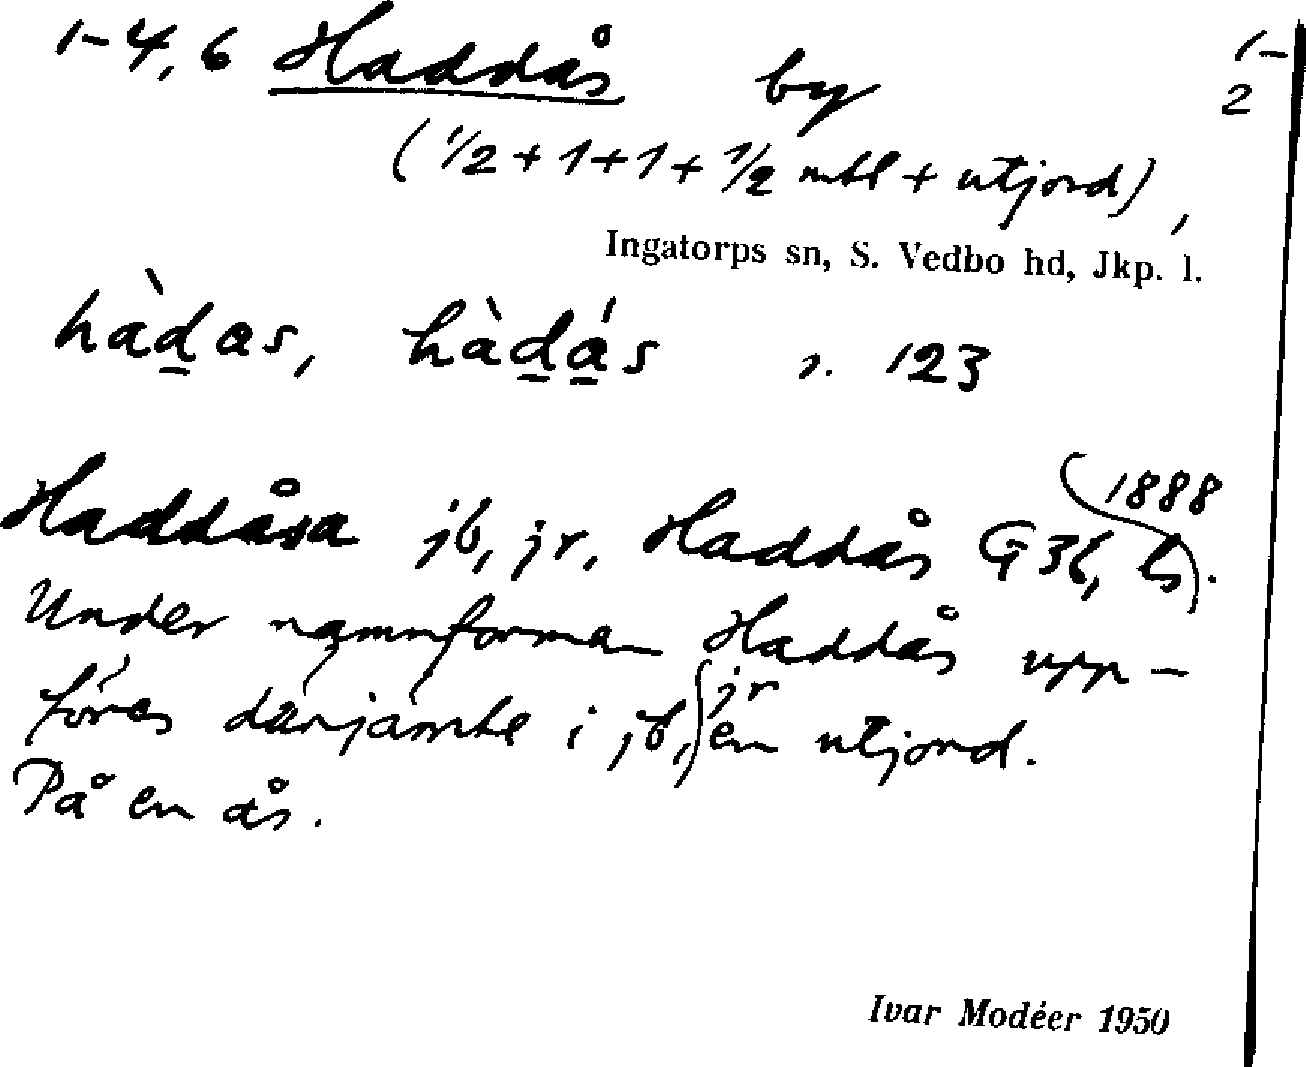 1-4, 6 Haddås by 1-
2
(1/2 + 1 + 1 + 1/2 mtl + utjord),
Ingatorps sn, S. Vedbo hd, Jkp. l.
hàd̲as, hàd̲á̲s s. 123
1888
Haddåsa jb, jr, Haddås G 36, ls.
Under namnformen Haddås upp-
jr
föres därjämte i jb, en utjord.
På en ås.
Ivar Modéer 1950